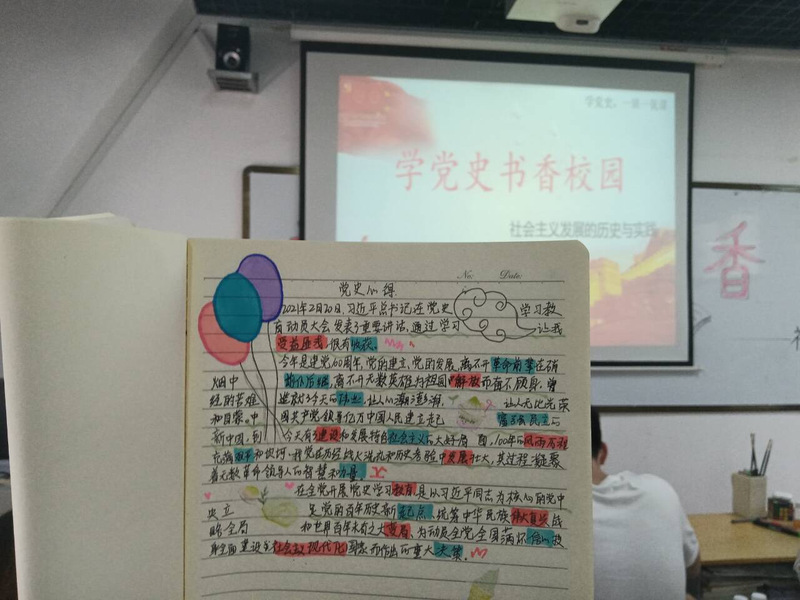 学党史，一讲一说课
学党史书香校园
社会主义发展的历史与实践
香
No:
Date:
党史心得
2021年2月20日，习近平总书记在党史 学习教
育动员大会发表了重要讲话，通过学习 让我
受益匪浅，很有收获。
今年是建党100周年，党的建立、党的发展，离不开革命前辈在硝
烟中 前仆后继，离不开无数英雄为祖国解放而奋不顾身，曾
经的苦难 造就了今天的伟业，让人心潮澎湃， 让人无比光荣
和自豪。中 国共产党领导亿万中国人民建立起 富强民主的
新中国，到 今天有了建设和发展特色社会主义的大好局 面，100年的风雨历程
充满艰辛和坎坷，我党在历经战火洗礼和历史考验中发展壮大，其过程凝聚
着无数革命领导人的智慧和力量。
在全党开展党史学习教育，是以习近平同志为核心的党中
央立 足党的百年历史新起点、统筹中华民族伟大复兴战
略全局 和世界百年未有之大变局、为动员全党全国满怀信心投
身全面建设社会主义现代化国家而作出的重大决策。